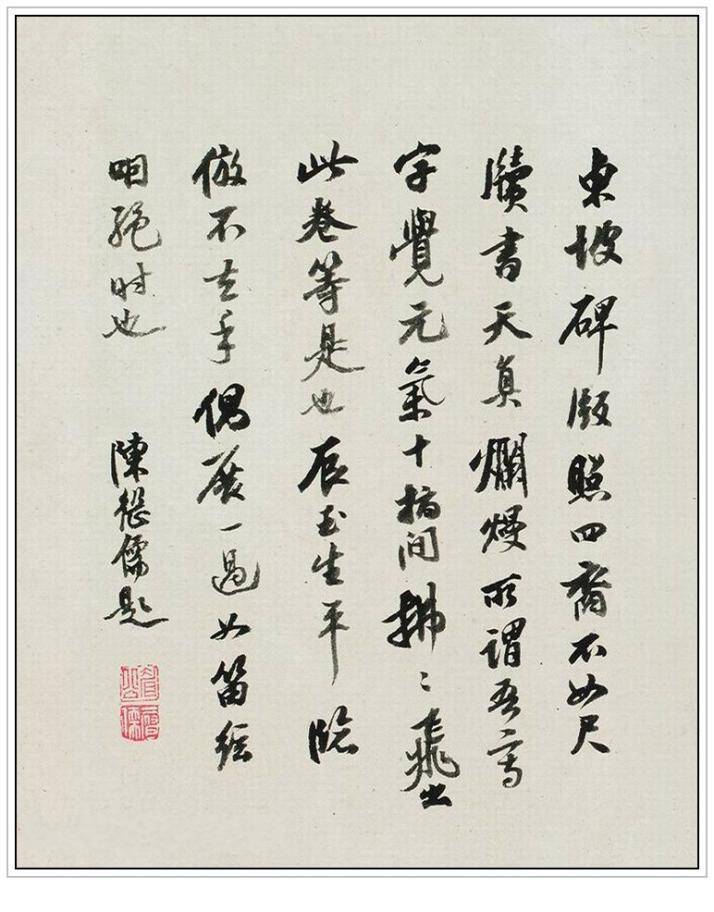 東坡碑版照四裔不如尺
牘書天真爛熳所謂吾寫
字覺元氣十指間拂〻飛出
此卷等是也辰玉生平臨
倣不去手偶展一過如笛絃
咽絕时也 陳繼儒題